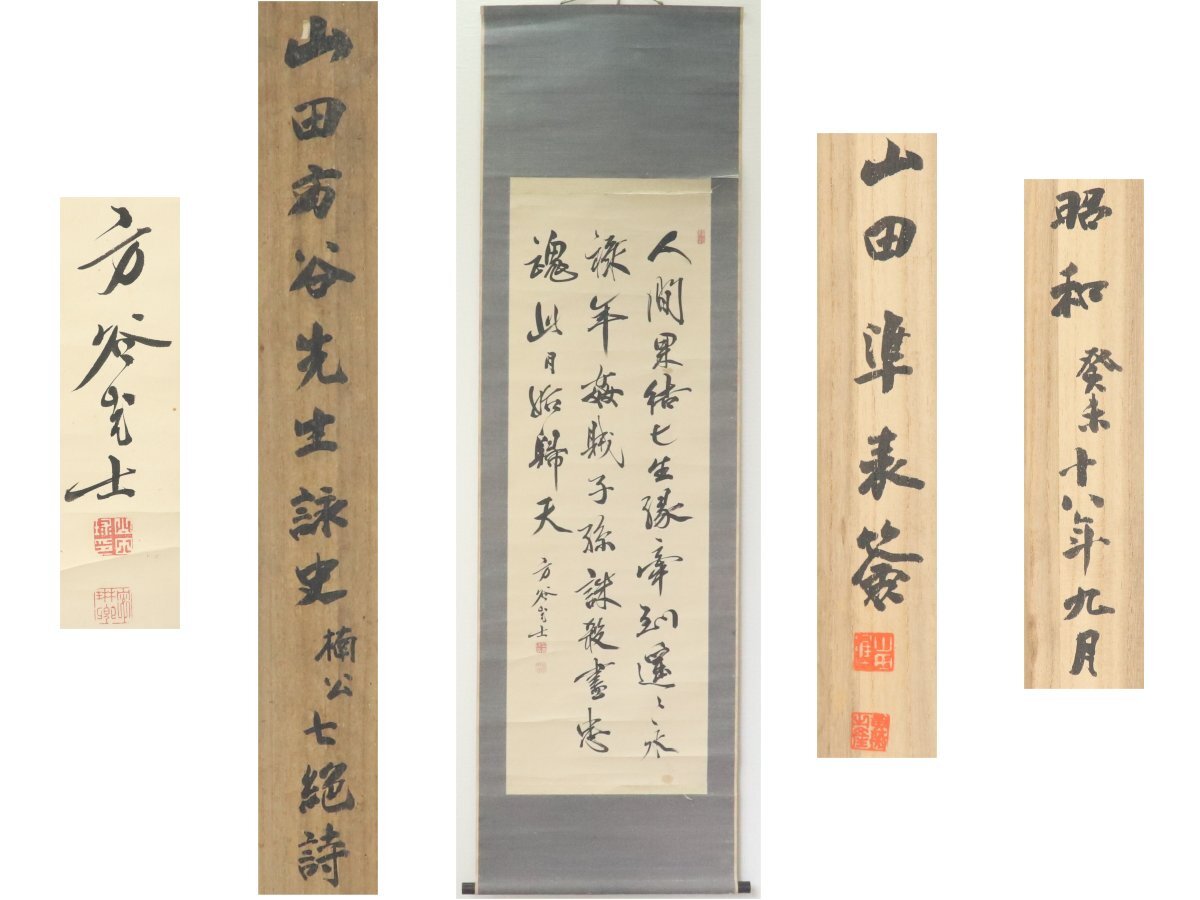 方谷士
山田方谷先生詠史楠公七絕詩
人間果結七生緣牽到遙〻永
祿年姦賊子孫誅殺盡忠
魂此月始歸天
方谷士
山田準表簽
昭和癸未十八年九月